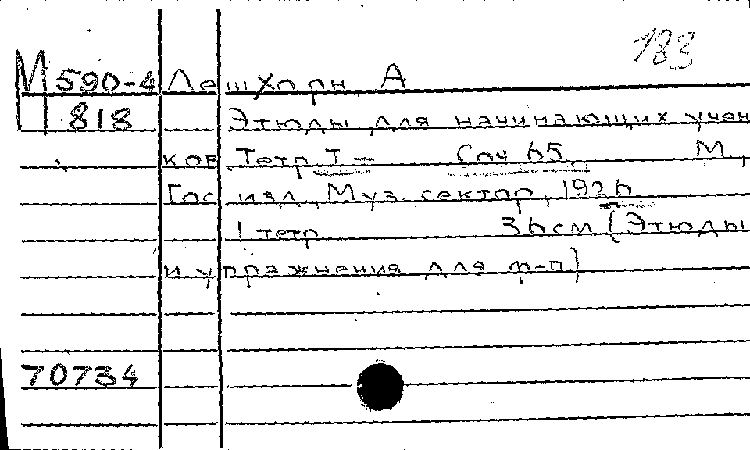 183
М 590-4 Лешхорн, А
818 Этюды для начинающих учен
ков Тетр. I – Соч 65. М.,
Гос изд, Муз. сектор, 1926
1 тетр 36см (Этюды
и упражнения для ф-п)
70734